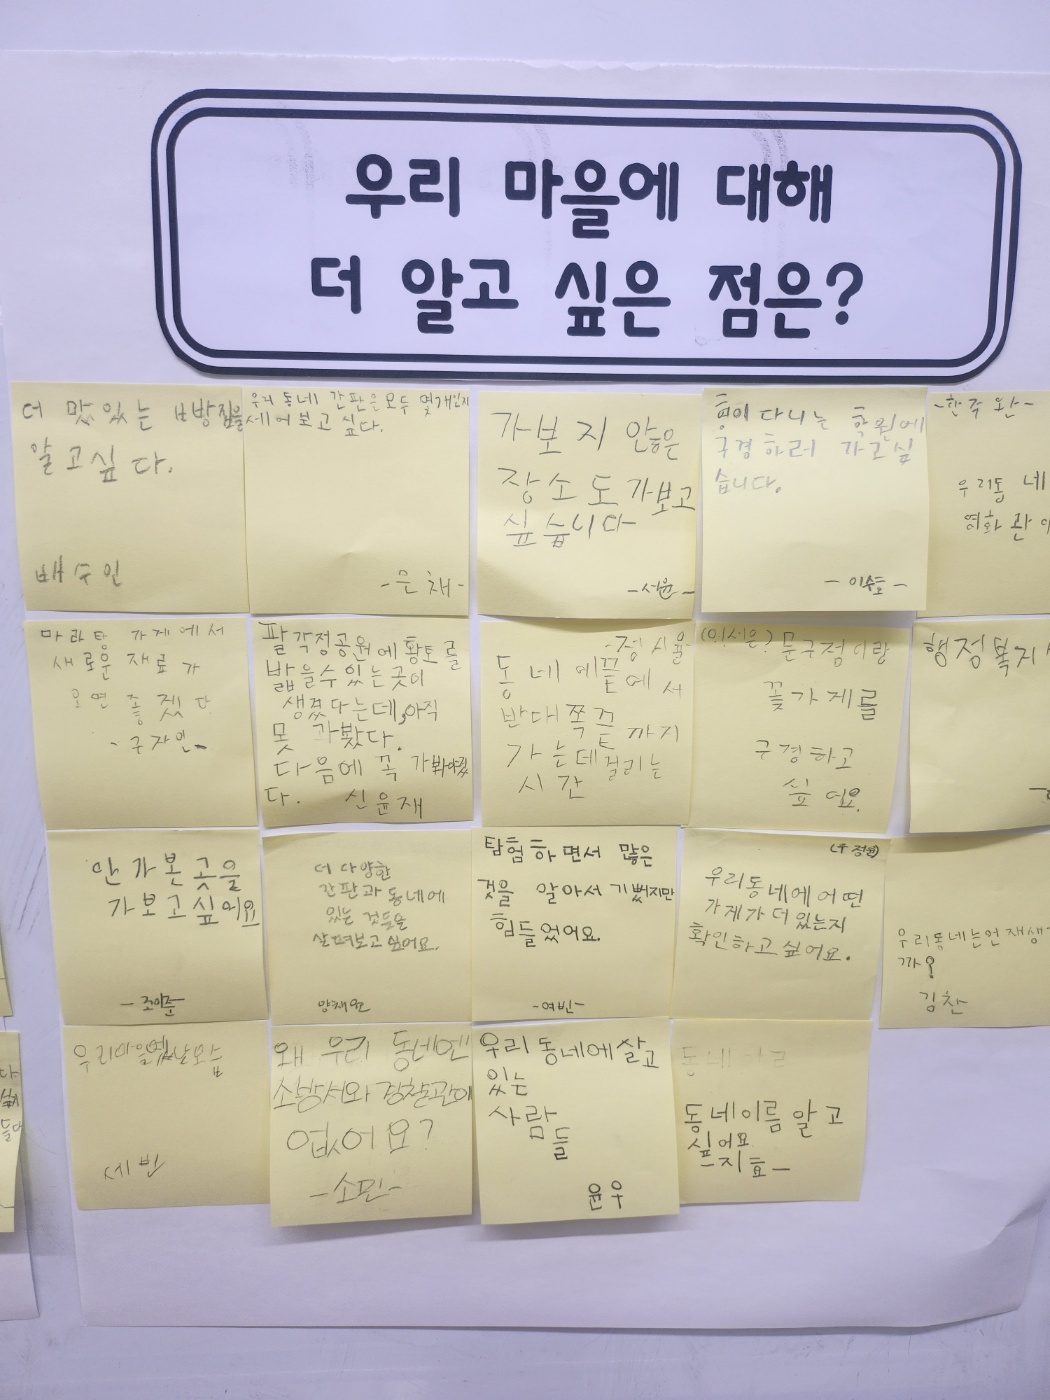 우리 마을에 대해
더 알고 싶은 점은?
더 맛있는 빠방집을
알고싶다.
배수인
우리 동네 간판은 모두 몇개인지
세어보고 싶다.
-은채-
가보지 않은
장소도 가보고
싶습니다
-서윤-
형이 다니는 학원에
구경하러 가고싶
습니다.
-한주완-
우리동네
영화관이
마라탕 가게에서
새로운 재료가
오면 좋겠다
-구자인-
팔각정공원에 황토를
밟을수있는곳이
생겼다는데,아직
못 가봤다.
다음에 꼭 가봐야겠
다. 신윤재
-정시율-
동네에끝에서
반대쪽끝까지
가는데걸리는
시간
문구점이랑
꽃가게를
구경하고
싶어요.
행정복지
안가본곳을
가보고싶어요
더 다양한
간판과 동네에
있는 것들을
살펴보고싶어요.
양채원
탐험하면서 많은
것을 알아서 기뻤지만
힘들었어요.
-여빈-
우리동네에 어떤
가게가 더 있는지
확인하고 싶어요.
우리동네는언제생
까?
김찬
우리마을옛날모습
세빈
왜 우리 동네엔
소방서와 경찰관이
없어요?
-소민-
우리동네에살고
있는
사람
들
윤우
동네이름알고
싶어요
-지효-